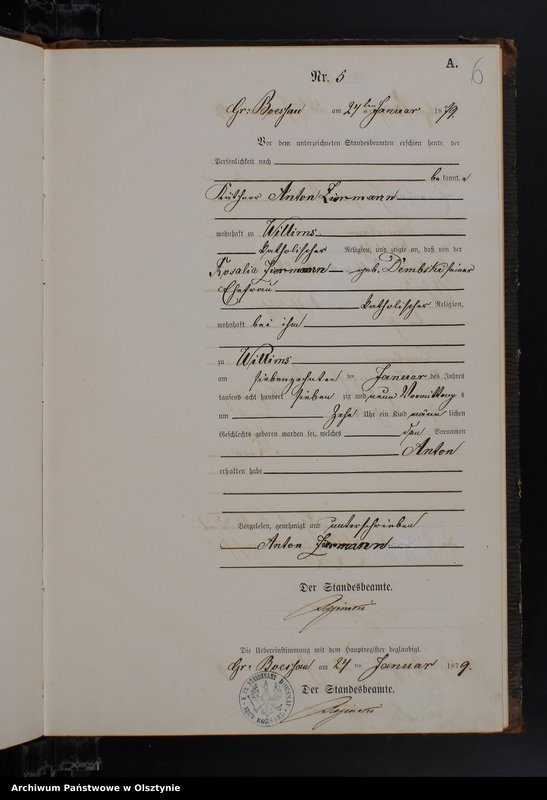 A.
6
Nr. 5
Gr: Boessau am 27ten Januar 1879
Vor dem unterzeichneten Standesbeamten erschien heute, der
Persönlichkeit nach
bekannt,
Anton
wohnhaft zu Willims
katholischer Religion, und zeigte an, daß von der
Rosalia geb. Dembski seiner
Ehefrau
katholischer Religion,
wohnhaft bei ihm
zu Willims
am siebenzehnten ten Januar des Jahres
tausend acht hundert sieben zig und neun Vormittags
um Zehn Uhr ein Kind männlichen
Geschlechts geboren worden sei, welches den Vornamen
Anton
erhalten habe
Vorgelesen, genehmigt und unterschrieben
Anton
Der Standesbeamte.
Die Uebereinstimmung mit dem Hauptregister beglaubigt.
Gr: Boessau am 27 ten Januar 1879.
Der Standesbeamte.
Archiwum Państwowe w Olsztynie